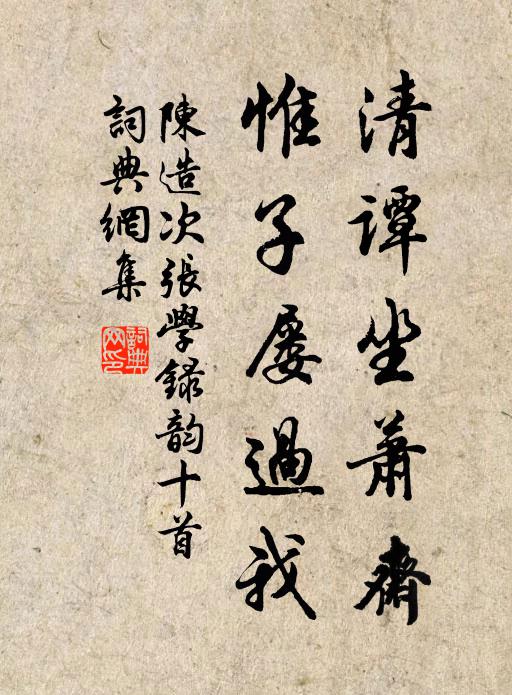 清譚坐蕭齋
惟子屡過我
陳造次張學録韵十首
詞典網集
詞典網印